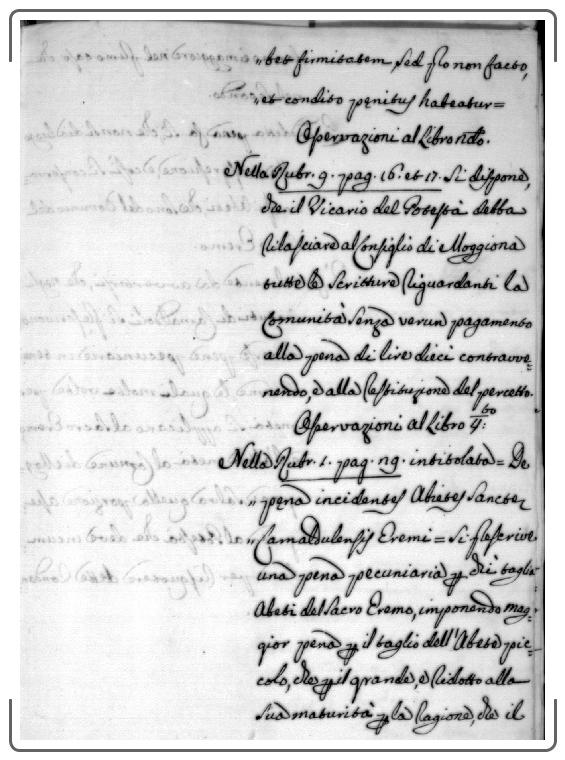 „bet firmitatem, sed pro non facto,
„et condito penitus habeatur=
Osservazioni al Libro
Nella Rubr. 9. pag. 16. et 17. Si dispone,
che il Vicario del Potestà debba
rilasciare al Consiglio di Moggiona
tutte le Scritture riguardanti la
Comunità senza verun pagamento
alla pena di lire dieci contravve=
nendo, e alla restituzione del percetto.
Osservazioni al Libro 4:to
Nella Rubr. 1. pag. intitolata= De
„pena incidentes Abietes Sancte
„Camaldulensis Eremi = Si prescrive
una pena pecuniaria p chi taglia
Abeti del Sacro Eremo, imponendo mag=
gior pena p il taglio dell'Abete pic=
colo, che p il grande, e ridotto alla
sua maturità p la ragione, che il